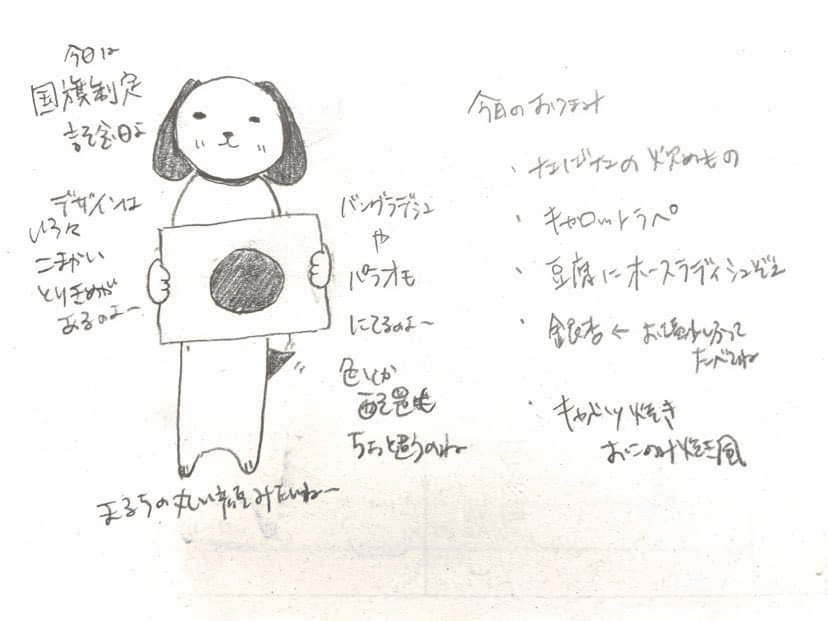 今日は
国旗制定
記念日よ
デザインは
いろ々
こまかい
とりきめが
あるのよー
バングラデシュ
や
パラオも
にてるのよー
色とか
配置も
ちょっと違うのね
まるちの丸い
みたいねー
今日のおつまみ
・たばたの炒めもの
・キャロットラペ
・豆腐にホースラディシュぞえ
・銀杏 ← お塩ふって
たべてね
・キャベツ焼き
おこのみ焼き風